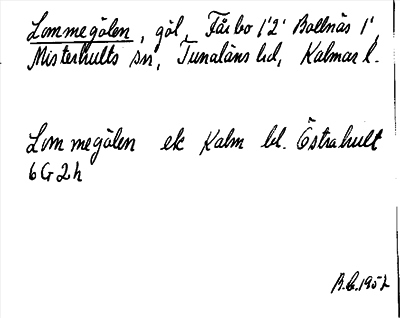 Lommegölen, göl, Fårbo 1'2' Bollnäs 1'
Misterhults sn, Tunaläns hd, Kalmar l.
Lommegölen ek Kalm bl. Östrahult
6G2h
B.L.1952